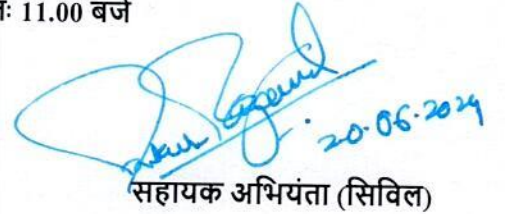 तः 11.00 बजे
20.06.2024
सहायक अभियंता (सिविल)